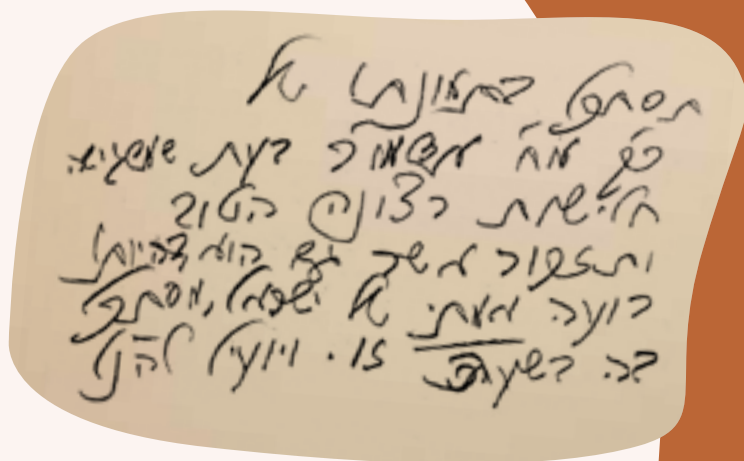 תסתכל בתמונתו של
כ״ק מו״ח אדמו״ר בעת שמגיע
חלישות רצונך הטוב
ותזכור אשר גם הוא בהיותו
רועה אמתי של ישראל, מסתכל
בה בשעה זו. ויועיל להנ״ל